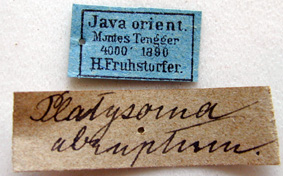 Java orient.
Montes Tengger
4000' 1890
H. Fruhstorfer.
Platysoma
abruptum.